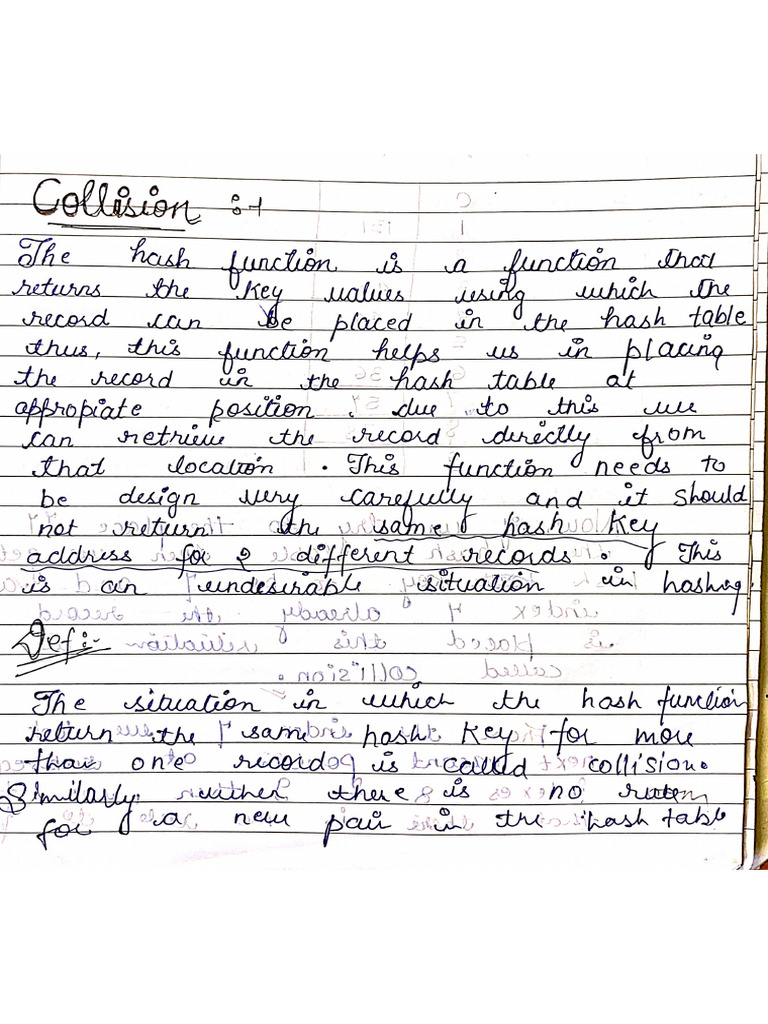 Collision :-
The hash function is a function that
returns the key values using which the
record can be placed in the hash table
thus, this function helps us in placing
the record in the hash table at
appropiate position. due to this we
can retrieve the record directly from
that location. This function needs to
be design very carefully and it should
not return the same hash key
address for 2 different records. This
is an undesirable situation in hashing.
Def:-
The situation in which the hash function
return the same hash key for more
than one record is called collision.
Similarly when there is no room
for a new pair in the hash table